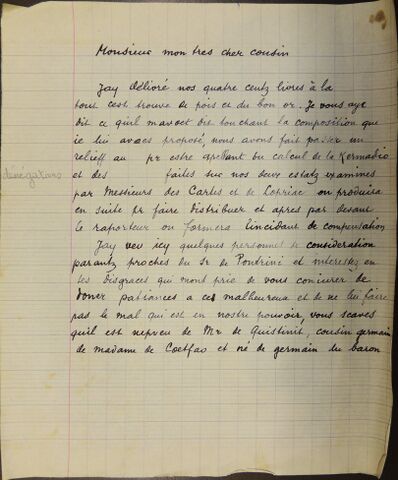 Monsieur mon tres cher cousin
Jay délioré nos quatre centz livres à la
tout cest trouve de pois et du bon or. Je vous aye
dit ce quil mavoet dit touchant la composition que
ie lui avoes proposé, nous avons fait passer un
relieff au pr estre apellant du calcul de la Kermadio
et des faites sur nos deux estatz examines
par Messieurs des Cartes et de Lopriac on produira
en suite pr faire distribuer et apres par devant
le raporteur on formera lincidant de compensation
Jay veu icy quelques personnes de consideration
parantz proches du Sr de Pontrini et interestez en
ses disgraces qui mont prié de vous coniurer de
doner patiances a ces malheureux et de ne lui faire
pas le mal qui est en nostre pouvoir, vous scaves
quil est nepveu de Mr de Quistinit, cousin germain
de madame de Coetfao et né de germain du baron